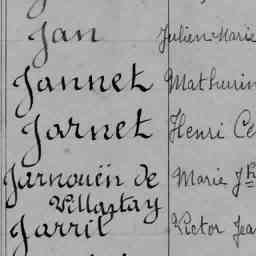 Jan Julien Marie
Jannet Mathurin
Jarnet Henri Ce
Jarnouën de Marie Jh
Villartay
Jarril Victor Jea